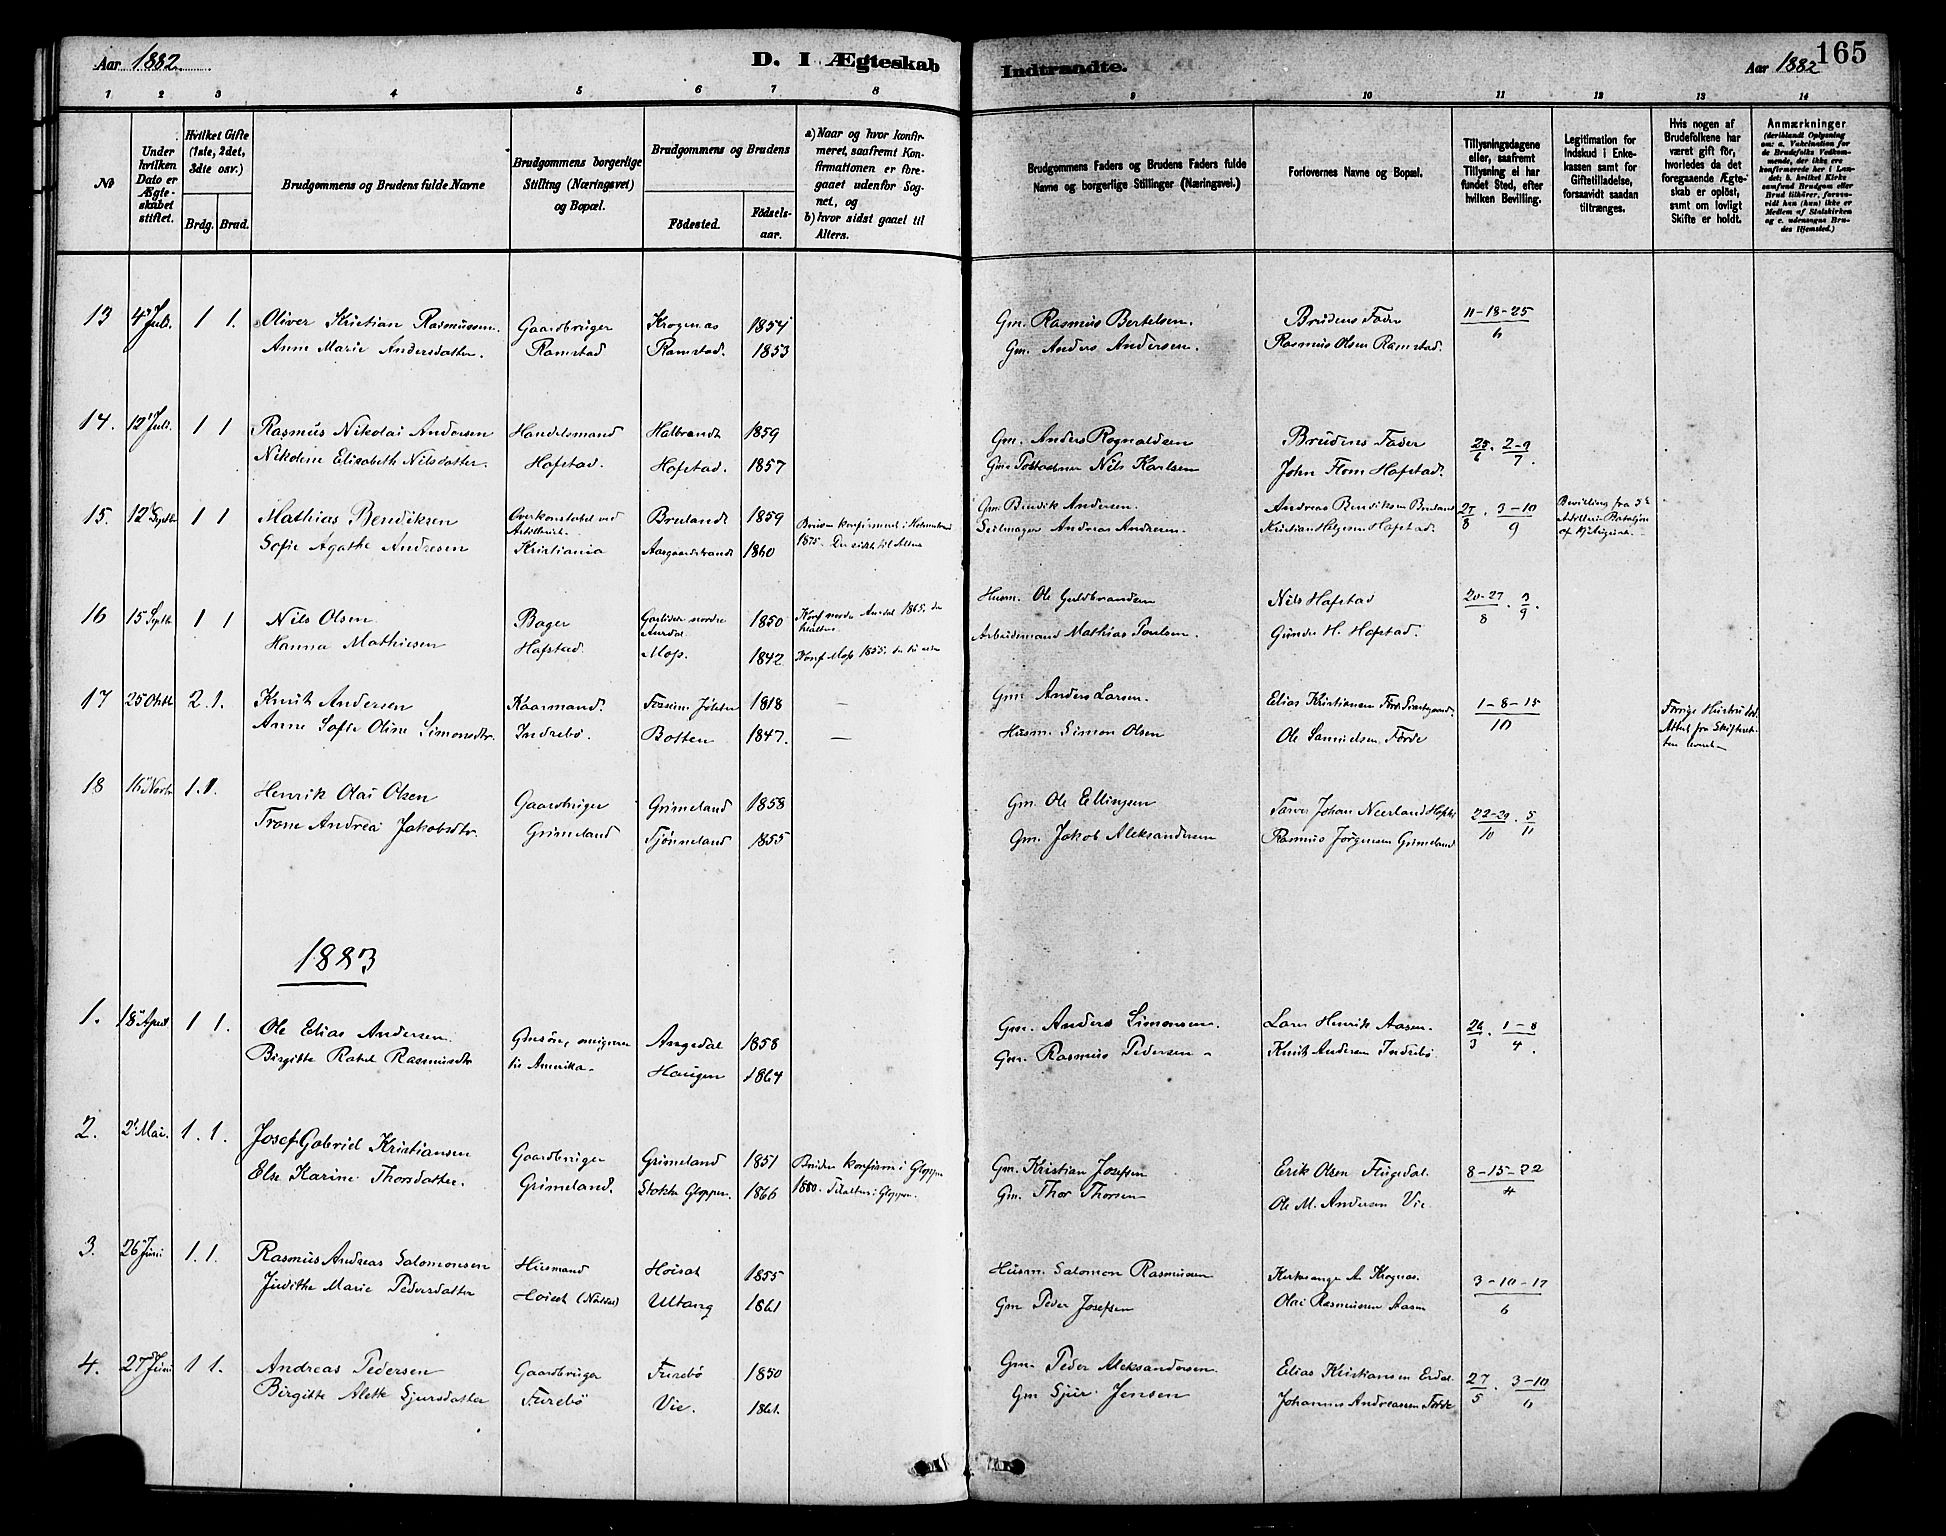 Aar 1882
D. I Ægteskab
Indtraadte.
Aar 1882
165
1 2 3 4 5 6 7 8
9 10 11 12 13 14
No
Under hvilken Dato er Ægteskabet stiftet.
Hvilket Gifte (1ste, 2det, 3die osv.)
Brdg. Brud.
Brudgommens og Brudens fulde Navne
Brudgommens borgerlige Stilling (Næringsvei) og Bopæl.
Brudgommens og Brudens
Födested.
Födsels-aar.
a) Naar og hvor konfirmeret, saafremt Konfirmationen er foregaaet udenfor Sognet, og
b) hvor sidst gaaet til Alters.
Brudgommens Faders og Brudens Faders fulde Navne og borgerlige Stillinger (Næringsvei.)
Forlovernes Navne og Bopæl.
Tillysningsdagene eller, saafremt Tillysning ei har fundet Sted, efter hvilken Bevilling.
Legitimation for Indskud i Enkekassen samt for Giftetilladelse, forsaavidt saadan tiltrænges.
Hvis nogen af Brudefolkene har været gift før, hvorledes da det foregaaende Ægteskab er oplöst, samt om lovligt Skifte er holdt.
Anmærkninger
(deriblandt Oplysning om: a. Vakcination for de Brudefolks Vedkommende, der ikke ere konfirmerede her i Landet; b. hvilket Kirkesamfund Brudgom eller Brud tilhører, forsaavidt han (hun) ikke er Medlem af Statskirken og c. udensogns Brudes Hjemsted.)
13 4 Juli 1 1. Oliver Kristian Rasmussen Gaardbruger Krognas 1854 Gm. Rasmus Bertelsen. Brudens Fader 11-18-25
Anne Marie Andersdatter. Ramstad Ramstad. 1853 Gm. Anders Andersen. Rasmus Olsen Ramstad. 6
14. 12 Juli. 1 1 Rasmus Nikolai Andersen Handelsmand Halbrandt 1859 Gm. Anders Rognaldsen Brudens Fader 25 . 2-9
Nikoline Elisabeth Nilsdatter. Hafstad. Hafstad. 1857 Nils Karlsen John Flom Hafstad. 6 7.
15. 12 Septbr 1 1 Mathias Bendiksen Overkonstabel ved Bruland 1859 Gm. Bendik Andersen. Andreas Bendiksen Bruland 27 . 3-10 Bevilling fra 5te
Sofie Agathe Andresen Artilleriet Kristiania Aasgaardstrand 1860 1875. Seilmager Andreas Andresen. Kristian Helgesen Hafstad. 8 9
16 15 Septbr 1 1 Nils Olsen Bager nordre Aurdal 1850 Konf nordre Aurdal 1865. Husm. Ole Guldbrandsen Nils Hafstad 20-27 . 3
Hanna Mathiesen Hafstad. Moss. 1842 Konf Moss 1855. Arbeidsmand Mathias Poulsen. Gunder H. Hafstad. 8 9.
17 25 Oktbr 2.1. Knut Andersen Kaarmand. Jölster 1818 — Gm. Anders Larsen. Elias Kristiansen 1-8-15 Forrige Hustru död.
Anne Sofie Oline Simonsdtr. Indrebø. Botten 1847. — Husm. Simon Olsen Ole Samuelsen Förde 10 Attest fra Skifteretten
18 16 Novbr 1.1. Henrik Olai Olsen Gaardbruger Grimeland 1858 Gm. Ole Ellingsen Johan Neerland 22-29 . 5
Trone Andrea Jakobsdtr. Grimeland Tjönneland 1855 Gm. Jakob Aleksandersen Rasmus Jörgensen Grimeland 10 11
1883
1. 18 April 1 1. Ole Elias Andersen. Gmsön, Angedal 1858 Gm. Anders Simonsen. Lars Henrik Aasen. 26 . 1-8
Birgitte Rakel Rasmusdtr til Amerika. Haugen 1864 Gm. Rasmus Pedersen Knut Andersen Indrebø. 3 4.
2. 2 Mai. 1.1. Josef Gabriel Kristiansen Gaardbruger Grimeland 1851 Bruden konfirm i Gloppen Gm. Kristian Josefsen Erik Olsen Flugedal. 8-15-22
Else Karine Thorsdatter. Grimeland. Gloppen. 1866 1880. Gloppen. Gm. Thor Thorsen Ole M. Andersen Vie. 4
3. 26 Juni 1.1. Rasmus Andreas Salomonsen Husmand Hoiset 1855 Husm. Salomon Rasmussen Kirkesanger A. Krognas. 3-10-17
Judithe Marie Pedersdatter Hoiset Ultang 1861 Gm Peder Josefsen Olai Rasmussen Aasen 6
4. 27 Juni 1 1. Andreas Pedersen Gaardbruger Furebø 1850 Gm. Peder Aleksandersen. Elias Kristiansen Erdal 27 . 3-10
Birgitte Alette Sjursdatter Furebø Vie. 1861. Gm Sjur Jensen Johannes Andreassen Förde 5 6